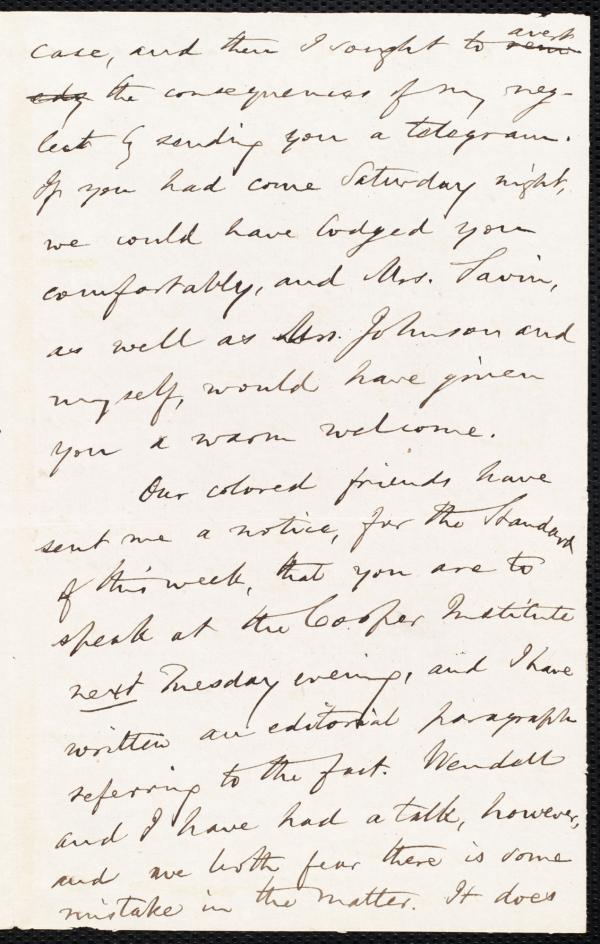 case, and then I sought to avert reme-
edy the consequences of my neg-
lect by sending you a telegram.
If you had come Saturday night,
we could have lodged you
comfortably, and Mrs. Savin,
as well as Mrs. Johnson and
myself, would have given
you a warm welcome.
Our colored friends have
sent me a notice, for the Standard
of this week, that you are to
speak at the Cooper Institute
next Tuesday evening, and I have
written an editorial paragraph
referring to the fact. Wendell
and I have had a talk, however,
and we both fear there is some
mistake in the matter. It does